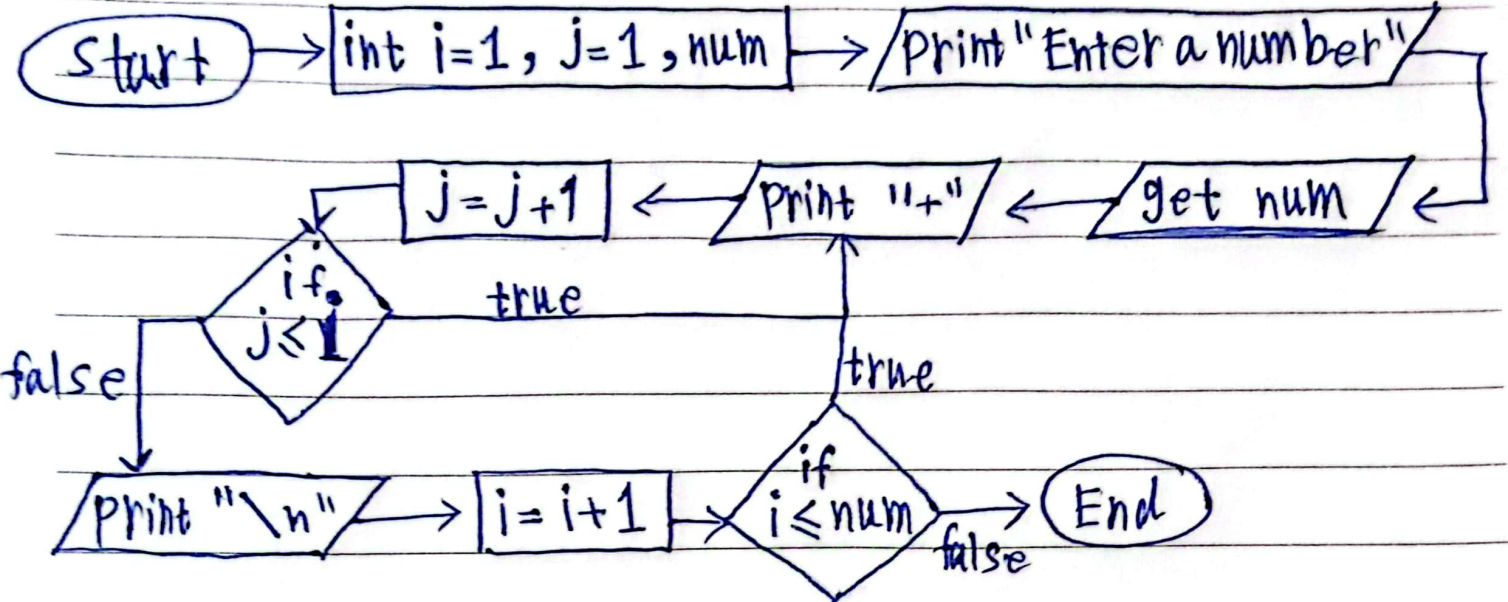 Start
int i=1, j=1, num
Print "Enter a number"
j=j+1
Print "+"
get num
if
j≤1
true
false
true
Print "\n"
i=i+1
if
i≤num
false
End